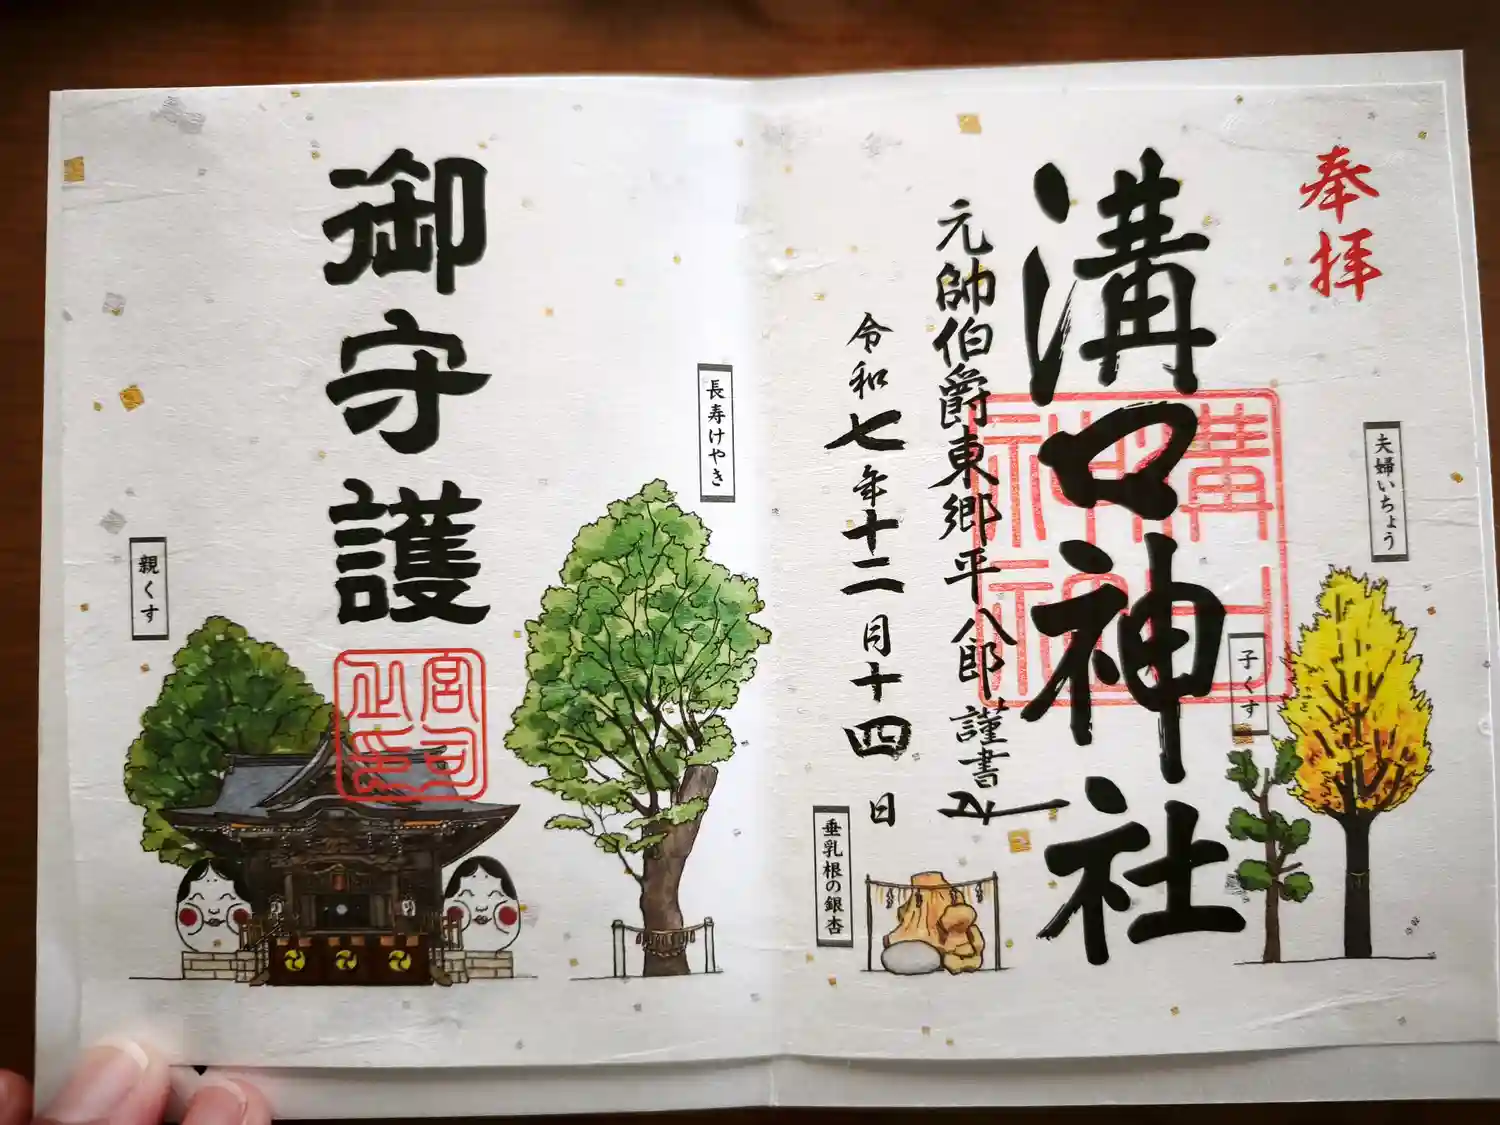 奉拝
夫婦いちょう
子くす
溝口神社
溝口神社
元帥伯爵東郷平八郎謹書
令和七年十二月十四日
垂乳根の銀杏
長寿けやき
御守護
宮司
親くす